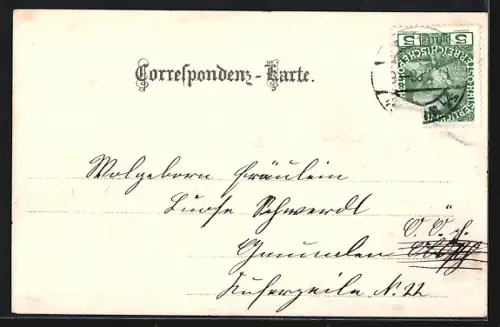 Correspondenz-Karte.
5 HELLER 5
KAISERLICHE KÖNIGLICHE ÖSTERREICHISCHE POST
Wolgeborn Fräulein
Luise Schwerdt
Gmunden
Kuferzeile N. 22